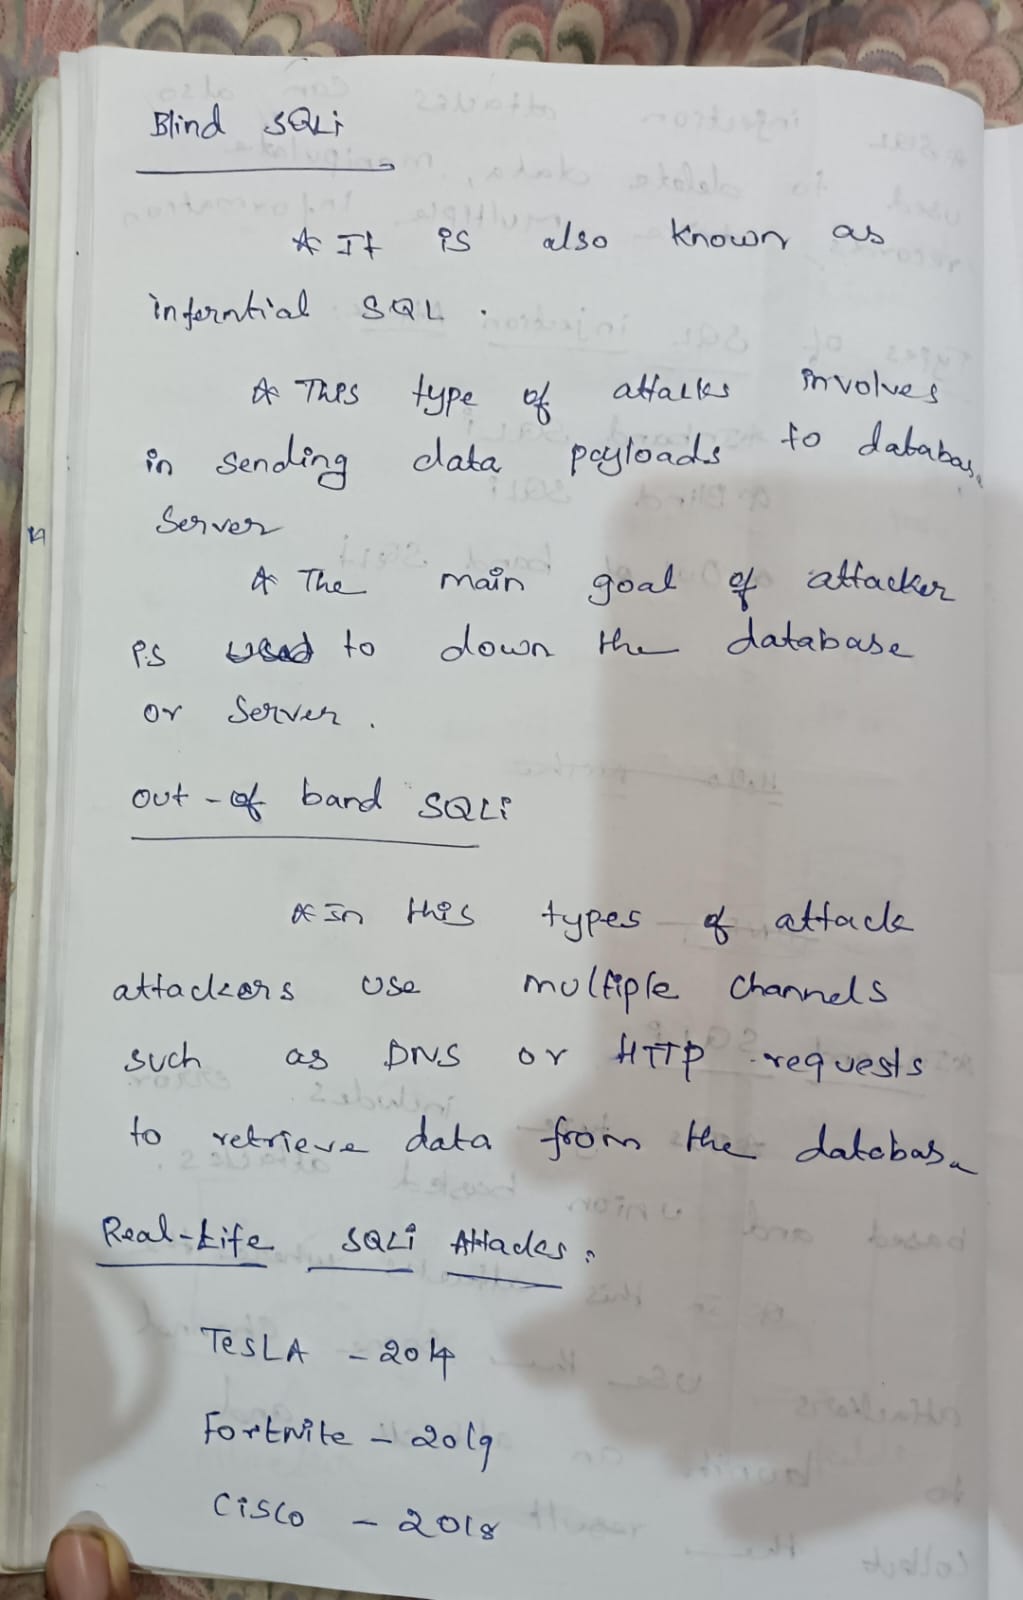 Blind SQLi
* It is also known as
inferntial SQL.
* This type of attacks involves
in sending data payloads to database
Server
* The main goal of attacker
is used to down the database
or Server.
out-of band SQLi
* In this types of attack
attackers use multiple channels
such as DNS or HTTP requests
to retrieve data from the database
Real-Life SQLi Attacks:
TESLA - 2014
Fortnite - 2019
Cisco - 2018